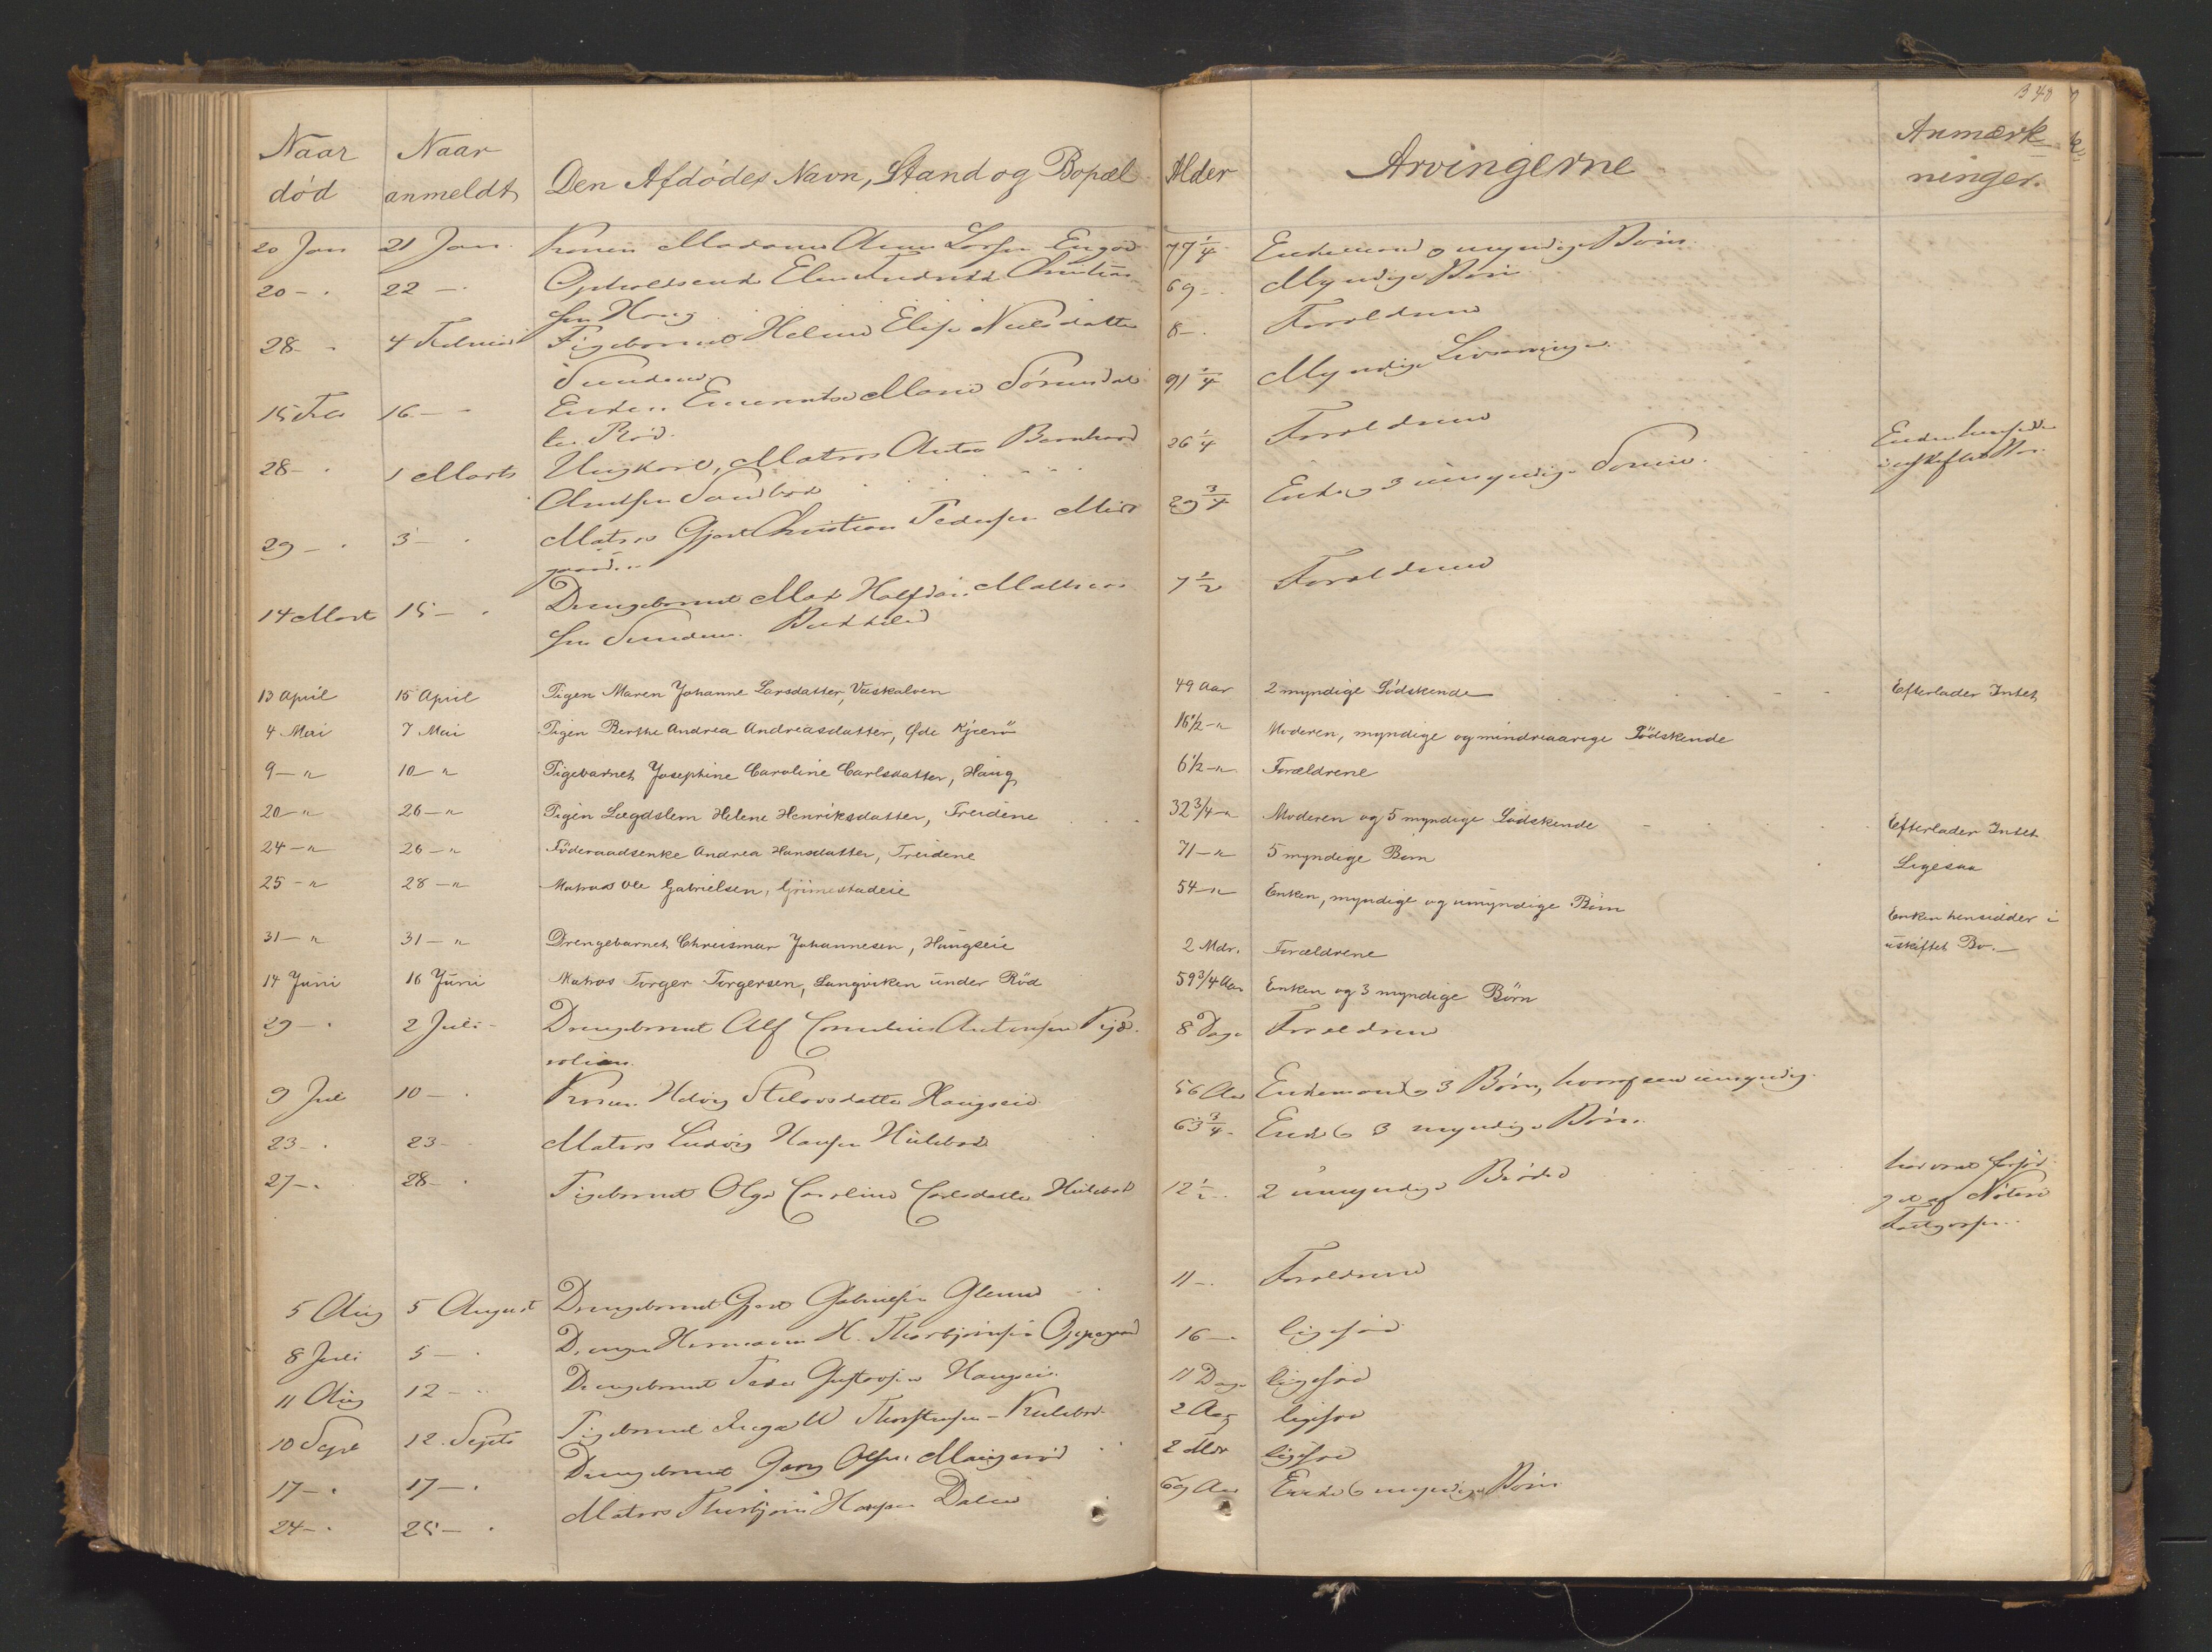 340
Naar død
Naar anmeldt
Den Afdødes Navn, Stand og Bopæl
Alder
Arvingerne
Anmærkninger.
20 Jan 21 Jan. Konen Madame Anne Larsen Engø 77 1/4 Enkemand og myndige Børn
20 - 22 - Elen
sen Haug 69 - Myndige Børn
28 - 4 Februar Pigebarnet Helene Elise Nielsdatter 8 - Forældrene
Sundene
15 Feb 16 - Enken Marie Sørensdat 91 1/4 Myndige Livsarvinger
ter Rød.
28 - 1 Marts Ungkarl, Matros Anton Bernhard 26 1/4 Forældrene
Sandbæk
29 - 3 - Matros Gjert Christian Pedersen 29 3/4 Enke og 3 umyndige Sønner. Enken hensidder
i uskiftet Bo.
14 Mart 15 - Drengebarnet Max Halfdan 7 1/2 Forældrene
sen Sundene
13 April 15 April Pigen Maren Johanne Larsdatter, Væskalven 49 Aar 2 myndige Södskende Efterlader Intet
4 Mai 7 Mai Pigen Berthe Andrea Andreasdatter, Øde Kjærö 16 1/2 - " Moderen, myndige og mindreaarige Södskende
9 - " 10 - " Pigebarnet Josephine Caroline Carlsdatter, Haug 6 1/2 - " Forældrene
20 - " 26 - " Pigen Lægdslem Helene Henriksdatter, Treidene 32 3/4 - " Moderen og 5 myndige Södskende Efterlader Intet
24 - " 26 - " Föderaadsenke Andrea Hansdatter, Treidene 71 - " 5 myndige Börn Ligesaa
25 - " 28 - " Matros Ole Gabrielsen, Grimestadeie 54 - " Enken, myndige og umyndige Börn Enken hensidder i
uskiftet Bo. -
31 - " 31 - " Drengebarnet Chreismar Johannesen, Haugseie 2 Mdr. Forældrene
14 Juni 16 Juni Matros Torger Torgersen, Langviken under Röd 59 3/4 Aar Enken og 3 myndige Börn
29 - 2 Juli - Drengebarnet Alf Cornelius Antonsen 8 Dage Forældrene
9 Juli 10 - Konen Helvig Haugseie 56 Aar Enkemand og 3 Børn, hvoraf een umyndig.
23 - 23 - Matros Ludvig Hansen Hulebak 63 3/4 - Enke & 3 myndige Børn.
27 - 28 - Pigebarnet Olga Caroline Carlsdatter Hulebak 12 1/2 - 2 umyndige Brødre har været forsør
get af Nøterø
Fattigvæsen
5 Aug 5 August Drengebarnet Gjert Gabrielsen Glenne 11 - Forældrene
8 Juli 5 - Drengen Hermann H. Thorbjørnsen Oppegaard 16 - ligesaa
11 Aug 12 - Drengebarnet Peder Gustavsen Haugseie 11 Dage ligesaa
10 Sept 12. Septb Pigebarnet Inga 2 Aar ligesaa
17 - 17 - Drengebarnet Georg Olsen 2 Mdr ligesaa
24 - 25 - Matros Thorbjørn Hansen Dalen 69 Aar Enke & myndige Børn